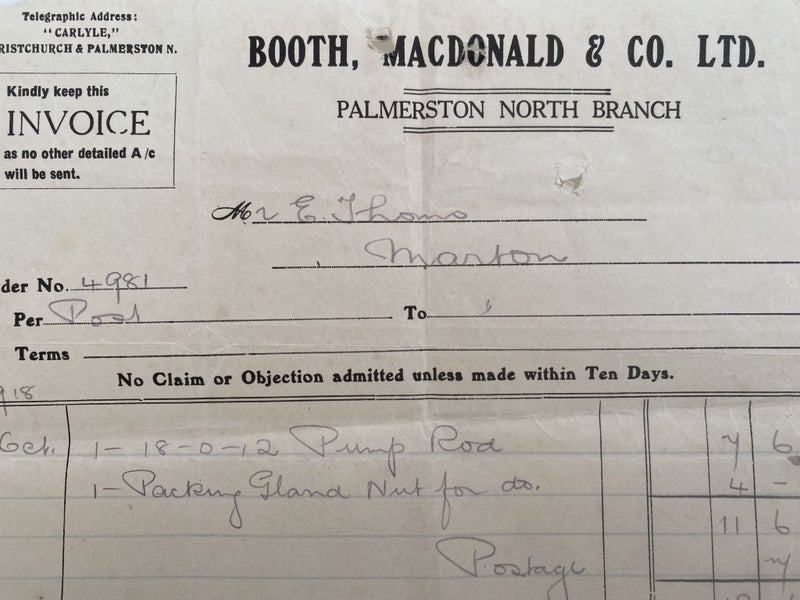 Telegraphic Address:
"CARLYLE,"
RISTCHURCH & PALMERSTON N.
BOOTH, MACDONALD & CO. LTD.
PALMERSTON NORTH BRANCH
Kindly keep this
INVOICE
as no other detailed A/c
will be sent.
Mr E. Thoms
Marton
der No. 4981
Per Post To
Terms
No Claim or Objection admitted unless made within Ten Days.
918
Oct. 1- 18-0-12 Pump Rod 7 6
1- Packing Gland Nut for do. 4 -
11 6
Postage 7